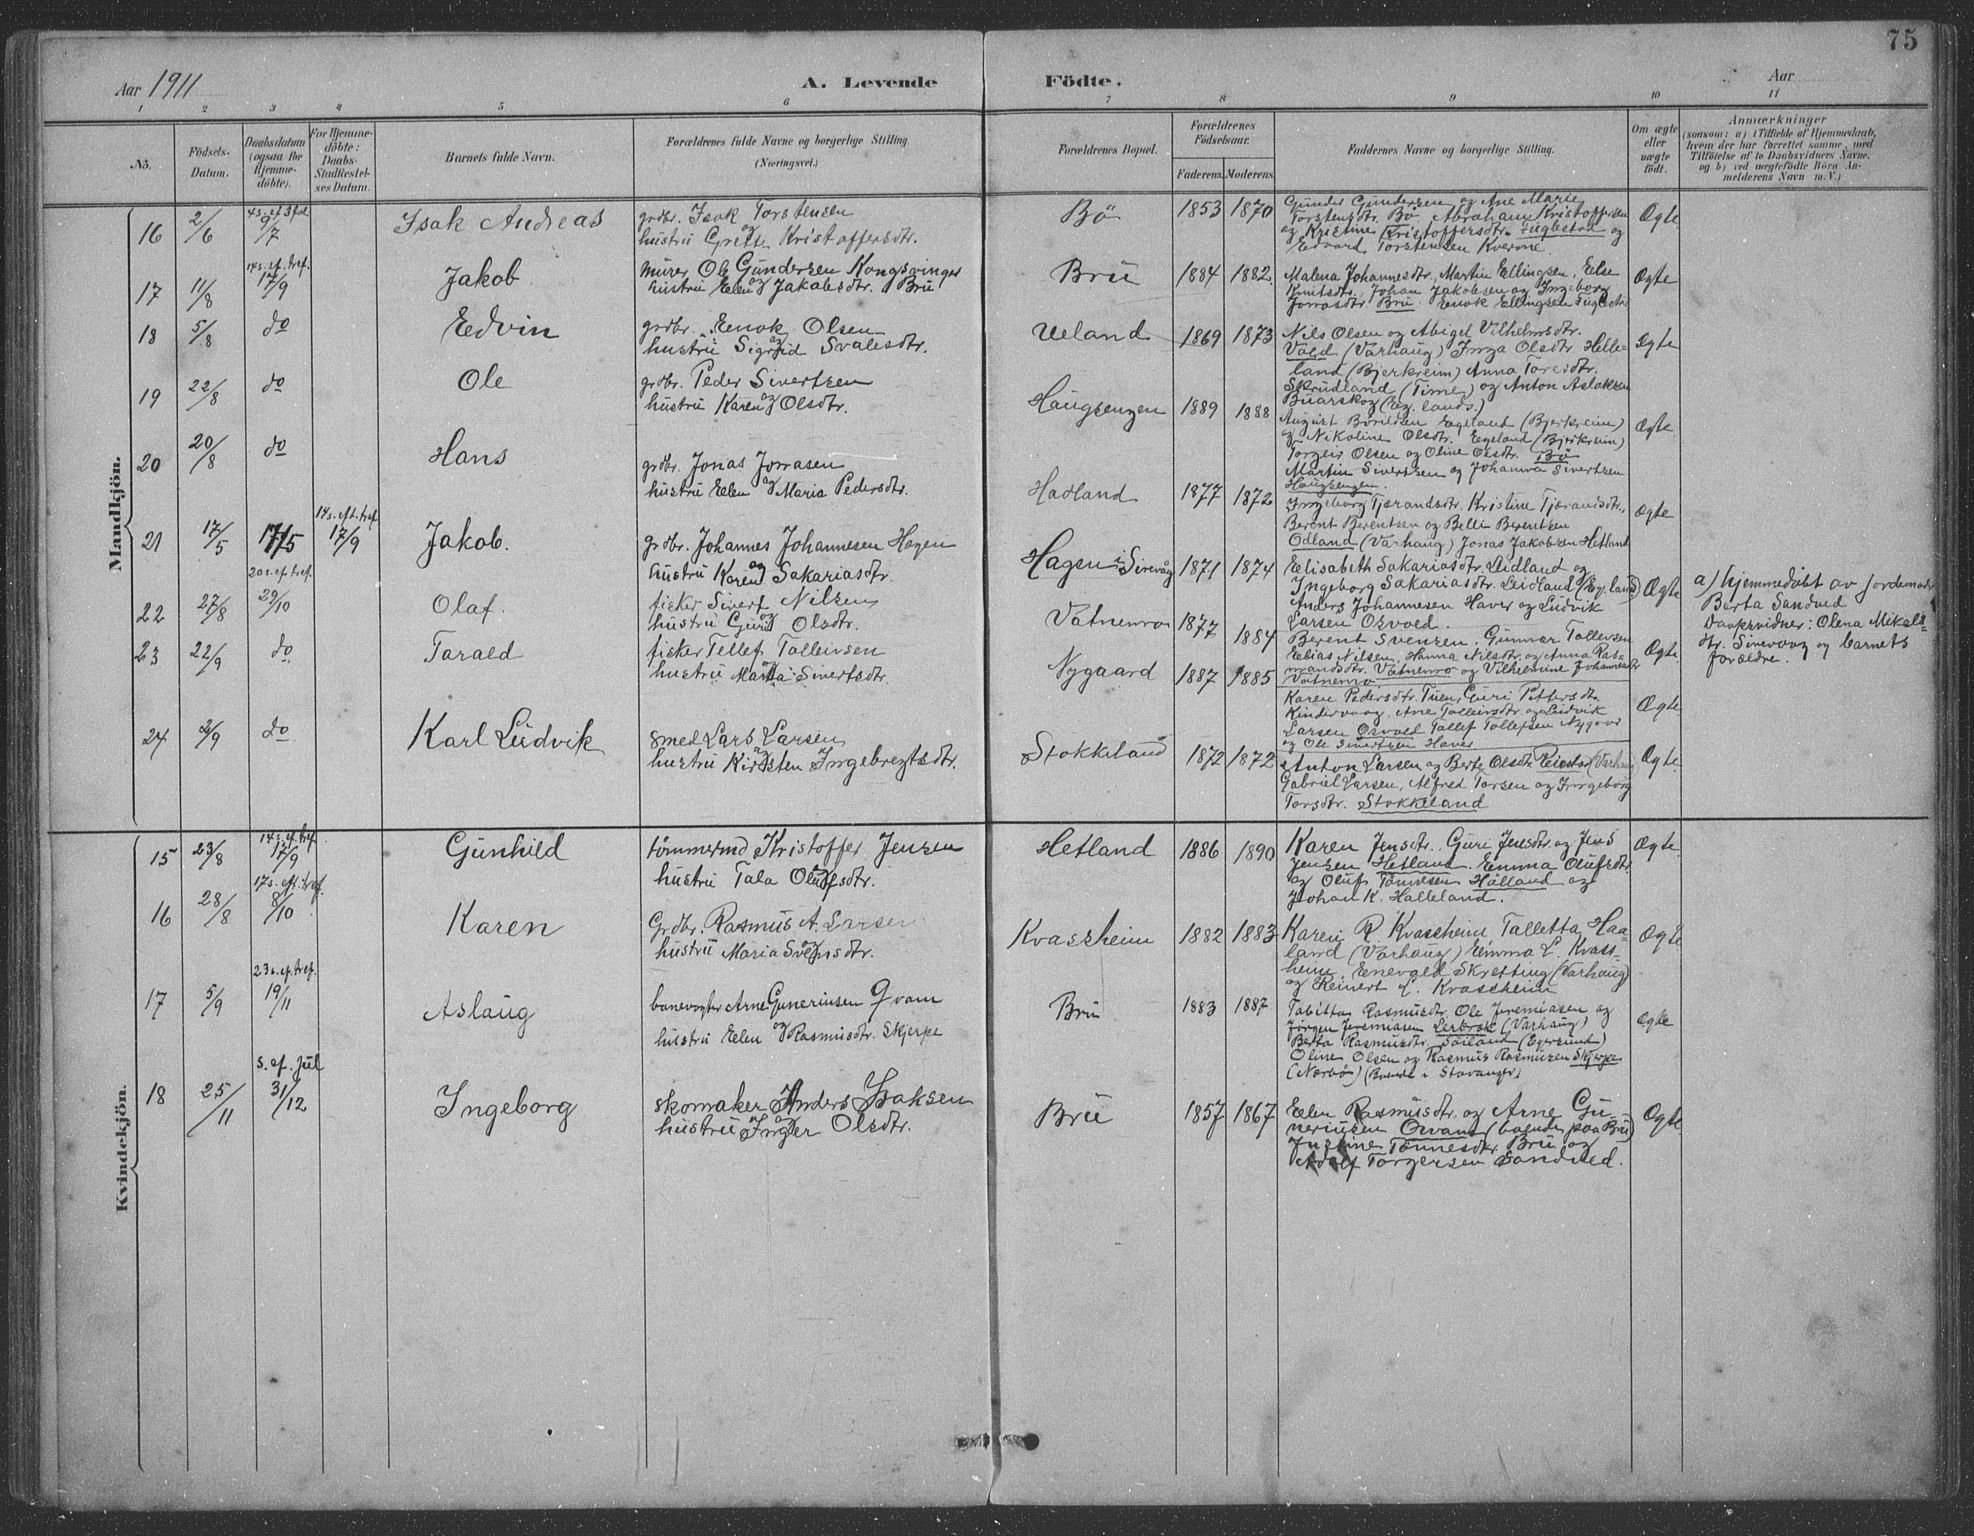 75
Aar 1911
A. Levende
Födte.
Aar
1 2 3 4 5 6 7 8 9 10 11
No.
Födsels-Datum.
Daabsdatum (ogsaa for Hjemmedöbte).
For Hjemmedöbte: Daabs-Stadfæstelses Datum.
Barnets fulde Navn.
Forældrenes fulde Navne og borgerlige Stilling.
(Næringsvei.)
Forældrenes Bopæl.
Forældrenes Födselsaar.
Faderens. Moderens.
Faddernes Navne og borgerlige Stilling.
Om ægte eller uægte födt.
Anmærkninger
(saasom: a) i Tilfælde af Hjemmedaab,
hvem der har forrettet samme, med
Tilföielse af to Daabsvidners Navne,
og b) ved uægtefödte Börn An-
melderens Navn m. V.)
Mandkjön.
16 2/6 4 s. ef. 3fd. 9/7 Isak Andreas
grdbr. Isak Torstensen
og
hustru Grette Kristoffersdtr.
Bö 1853 1870
Gunder Gundersen og Ane Marie
Torstensdtr. Bö, Abraham Kristoffersen
og Kristine Kristoffersdtr. Fuglestad og
Edvard Torstensen Kverme
Ægte
17 11/8 14 s. ef. tref. 17/9 Jakob
murer Ole Gundersen Kongsvinger
hustru Elen og Jakobsdtr. Bru
Bru 1884 1882
Malena Johannesdtr. Martin Ellingsen, Else
Knutsdtr. Johan Jakobsen og Ingeborg
Jonasdtr. Bru Enok Ellingsen Fuglestad
Ægte
18 5/8 do Edvin
grdbr. Enok Olsen
og
hustru Sigrid Svalesdtr.
Ueland 1869 1873
Nils Olsen og Abigel Vilhelmsdtr.
Vold (Varhaug) Inga Olsdtr. Helle-
land (Bjerkreim) Anna Toresdtr.
Skrudland (Time) og Anton Aslaksen
Buarskog (Eg. lands.)
Ægte
19 22/8 do Ole
grdbr. Peder Sivertsen
hustru Karen og Olsdtr.
Haugsengen 1889 1888
August Bovildsen Egeland (Bjerkreim)
og Nikoline Olsdtr. Egeland (Bjerkreim)
Torgeir Olsen og Oline Olsdtr. Bö
Martin Sivertsen og Johanna Sivertsen
Haugsengen.
Ægte
20 20/8 do Hans
grdbr. Jonas Jonasen
hustru Elen og Maria Pedersdtr.
Hadland 1877 1872
Ingeborg Tjerandsdtr. Kristine Tjerandsdtr.
Berent Berentsen og Belli Berentsen
Odland (Varhaug) Jonas Jakobsen Hetland
Ægte
21 17/5 17/5 14 s. eft. tref. 17/9 Jakob.
grdbr. Johannes Johannesen Hagen
og
hustru Karen Sakariasdtr.
Hagen i Sirevåg 1871 1874
Elisabeth Sakariasdtr. Leidland og
Ingeborg Sakariasdtr. Leidland (Eg. lands)
Anders Johannesen Haver og Ludvik
Larsen Osvold.
Ægte
a) hjemmedøbt av jordemoder
Berta Sandved
Daapsvidner: Olena Mikals-
dtr. Sirevaag og barnets
forældre.
22 27/8 20 s. ef. tref. 29/10 Olaf.
fisker Sivert Nilsen
og
hustru Guri Olsdtr.
Vatnemo 1877 1884
Berent Svensen, Gunnar Tollevsen
Elias Nilsen, Hanna Nilsdtr. og Anna Ras-
mundsdtr. Vatnemo og Vilhelmine Johannesdtr
Vatnemo
Ægte
23 22/9 do Tarald
fisker Tellef Tolleivsen
hustru Marta Sivertsdtr.
Nygaard 1887 1885
Karen Pedersdtr. Tuen, Guri Pettersdtr.
Kindervaag, Ane Tolleivsdtr. og Ludvik
Larsen Osvold Tallef Tollefsen Nygaar
og Ole Sivertsen Haver
Ægte
24 2/9 do Karl Ludvik
smed Lars Larsen
og
hustru Kirsten Ingebregtsdtr.
Stokkeland 1872 1872
Anton Larsen og Berte Olsdtr. Reiestad (Varhaug
Gabriel Larsen, Alfred Torsen og Ingeborg
Torsdtr. Stokkeland
Ægte.
Kvindekjön.
15 23/8 14 s. ef. tref. 17/9 Gunhild
tömmermd Kristoffer Jensen
hustru Tala Olufsdtr.
Hetland 1886 1890
Karen Jensdtr. Guri Jensdtr. og Jens
Jensen Hetland. Emma Olufsdtr.
og Oluf Tönnesen Hålland og
Johan K. Halleland.
Ægte.
16 28/8 17 s. eft. tref. 8/10 Karen
Grdbr. Rasmus A. Larsen
og
hustru Maria Svensdtr.
Kvassheim 1882 1883
Karen R Kvassheim Talletta Haa-
land (Varhaug) Emma L. Kvass-
heim, Enevald Skretting (Varhaug)
og Reinert L. Kvassheim
Ægte
17 5/9 23 s. ef. tref. 19/11 Aslaug
banevogter Arne Guneriusen Qvam
hustru Elen og Rasmusdtr. Skjerpe
Bru 1883 1887
Tabitta Rasmusdtr. Ole Jeremiasen og
Jørgen Jeremiasen Lerbrek (Varhaug)
Berta Rasmusdtr. Søiland (Egersund)
Oline Olsen og Rasmus Rasmusen Skjerpe
(Nærbö) (Boende i Stavanger)
Ægte
18 25/11 s. ef. jul 31/12 Ingeborg
skomaker Anders Isaksen
og
hustru Inger Olsdtr.
Bru 1857 1867
Elen Rasmusdtr. og Arne Gu-
neriusen Qvam (boende paa Bru)
Justine Tönnesdtr. Bru og
Adolf Torgersen Sandved.
Ægte